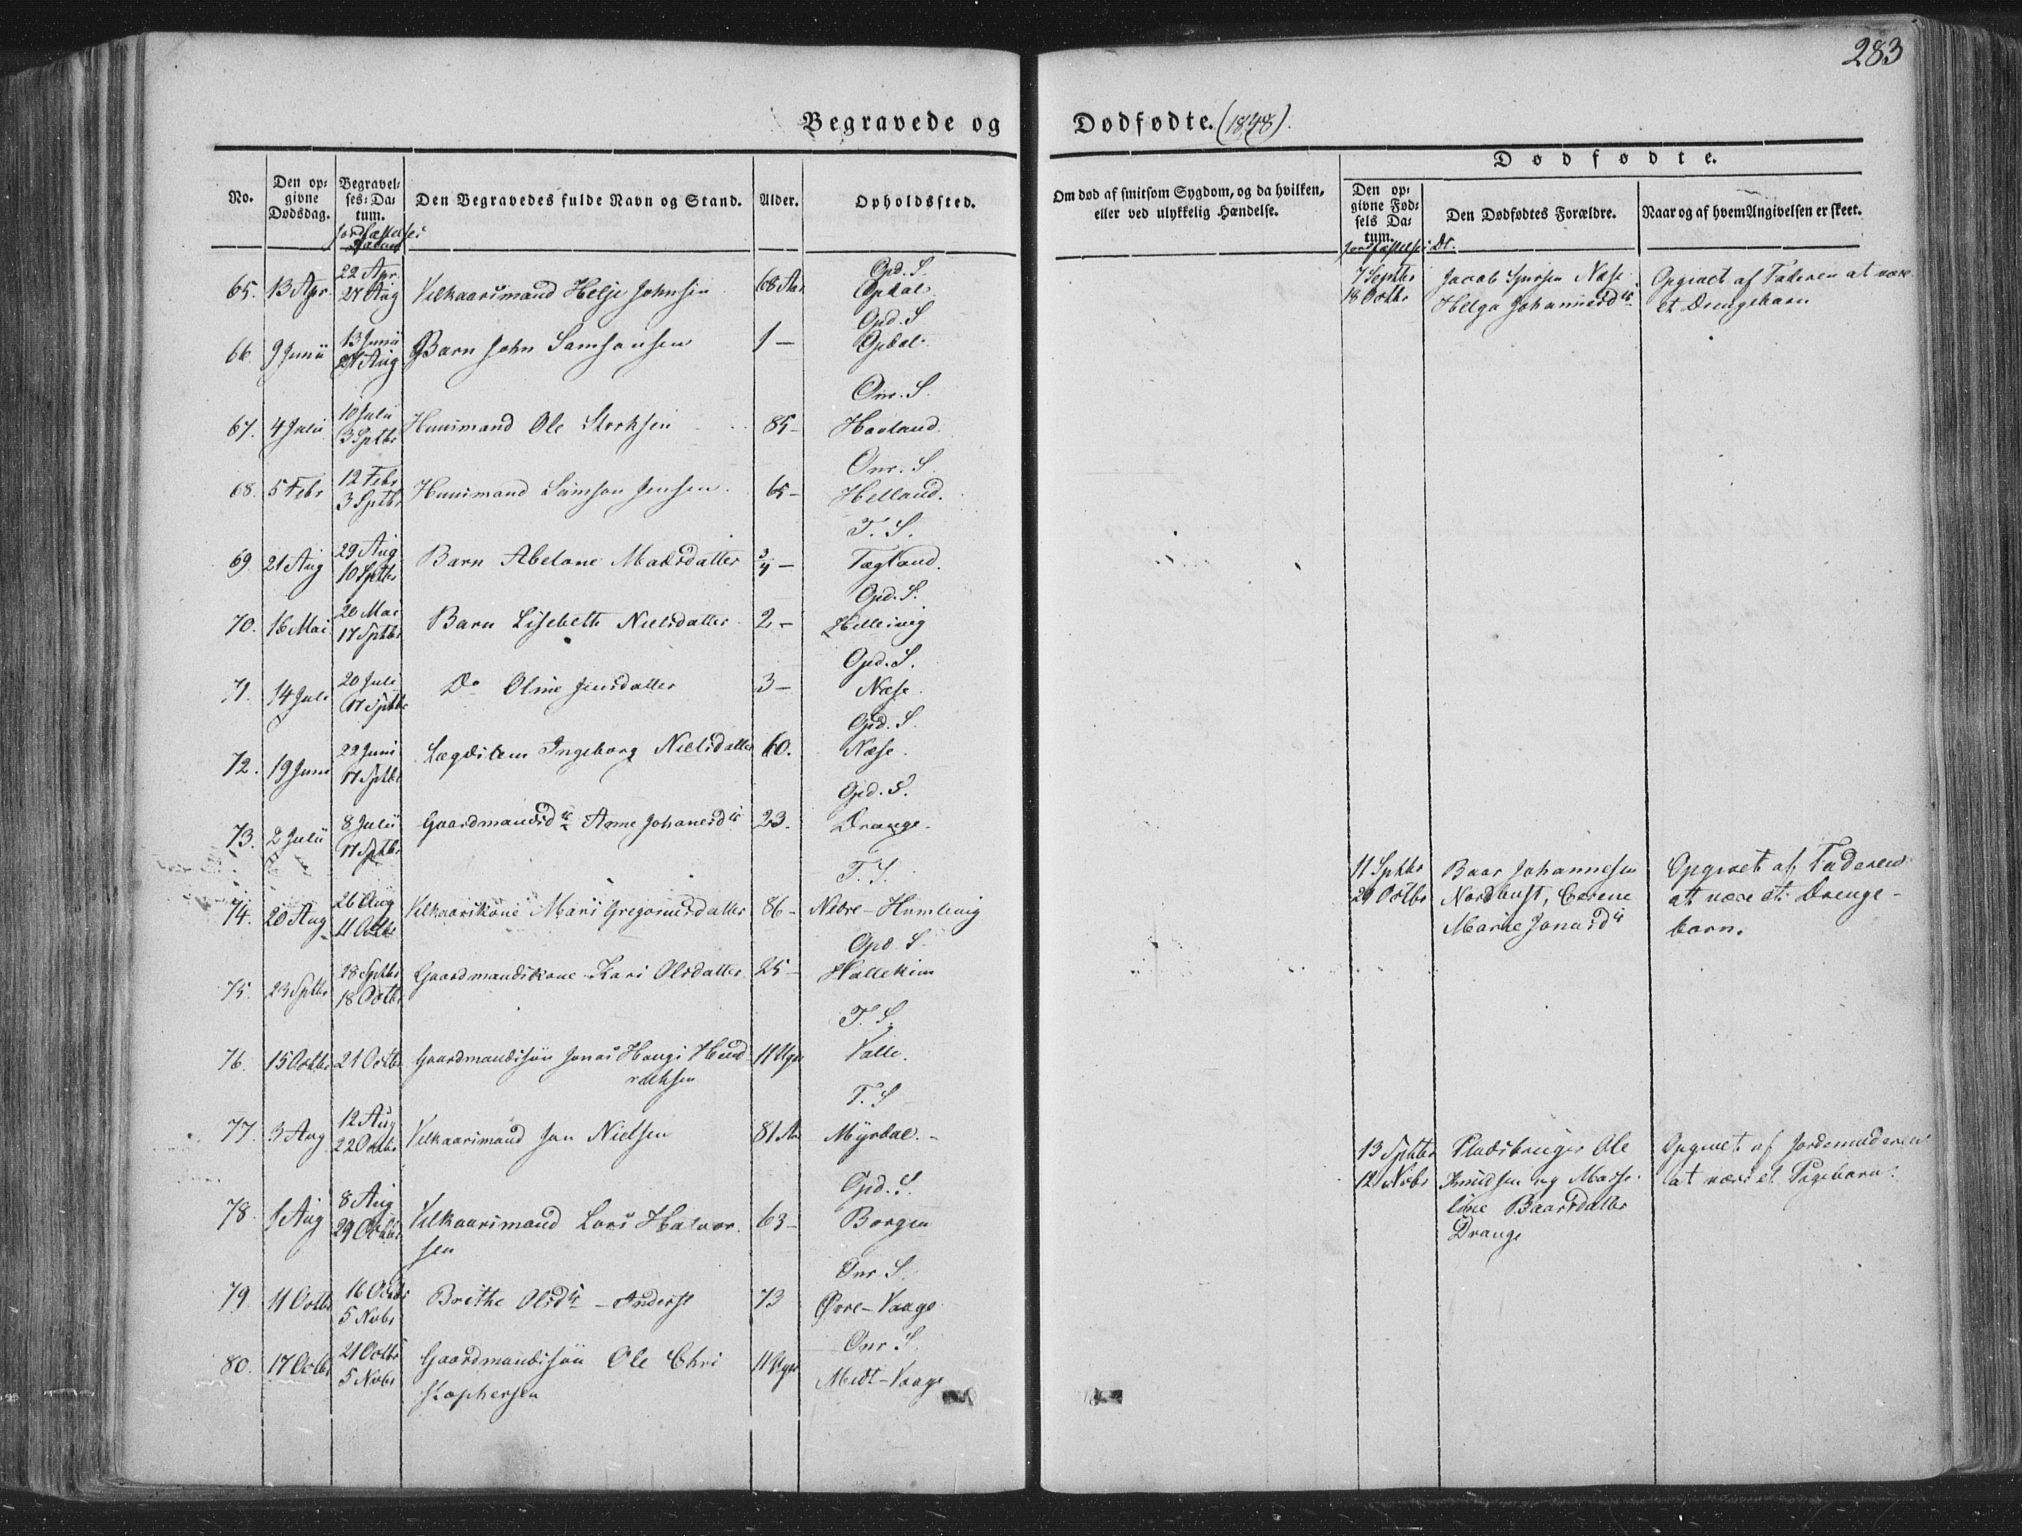 283
Begravede og Dødfødte. (1848).
No.
Den opgivne Dødsdag.
Begravelses-Datum.
Jordfæstelses Datum
Den Begravedes fulde Navn og Stand.
Alder.
Opholdssted.
Om død af smitsom Sygdom, og da hvilken, eller ved ulykkelig Hændelse.
Dødfødte.
Den opgivne Fødsels Datum.
Jordfæstelses Dt.
Den Dødfødtes Forældre.
Naar og af hvem Angivelsen er skeet.
65. 13 Apr 22 Apr 27 Aug Vilkaarsmand Helje Johnsen 68 Aar Opd. S. Opdal
66. 9 Junii 13 Junii 27 Aug Barn John Samsonsen 1 — Opd. S Opdal
67. 4 Julii 10 Julii 3 Sptbr Huusmand Ole Storksen 85 — Onr. S. Havland
68. 5 Febr 12 Febr 3 Sptbr Huusmand Samson Jensen 65 — Onr. S. Helland.
69. 21 Aug 29 Aug 10 Sptbr Barn Abelone Madsdatter 3/4 — T. S. Tægland.
70. 16 Mai 20 Mai 17 Sptbr Barn Lisebeth Nielsdatter 2 — Opd. S. Hellevig
71. 14 Juli 20 Juli 17 Sptbr Do Oline Jensdatter 3 — Opd. S. Næse
72. 19 Juni 22 Juni 17 Sptbr Lægdslem Ingeborg Nielsdatter 60. Opd. S. Næse
73. 2 Julii 8 Julii 17 Sptbr Gaardmandsdtr Anne Johanesdtr 23. Opd. S. Drange.
74. 20 Aug 26 Aug 11 Octbr Vilkaarskone Mari Gregoriusdatter 86 — T. S. Nedre-Humlevig
75. 23 Sptbr 28 Sptbr 18 Octbr Gaardmandskone Kari Olsdatter 25 — Opd S. Hallekim
76. 15 Octbr 21 Octbr Gaardmandssøn Jonas Haugi Hendricksen 11 Uger T. S. Valle.
77. 3 Aug 12 Aug 22 Octbr Vilkaarsmand Jon Nielsen 81 Aar T. S Myrdal. —
78. 1 Aug 8 Aug 29 Octbr Vilkaarsmand Lars Halvorsen 63 — Opd. S. Borgen
79 11 Octbr 16 Octbr 5 Novbr Brithe Olsdtr — 73 Onr S. Øvre-Vaage
80. 17 Octbr 21 Octbr 5 Novbr Gaardmandssøn Ole Christophersen 11 Uger Onr S. Midt-Vaage
7 Septbr 18 Octbr
Jacob Næse
Helga Johannesdtr
Opgivet af Faderen at være
et Drengebarn
11 Sptbr 29 Octbr
Baar Johannesen
Nordhust, Cerene
Marie Jonasdtr
Opgivet af Faderen
at være et Drenge-
barn.
13 Sptbr 12 Nvbr
Pladsbruger Ole
Knudsen og Masse-
lene Baarsdatter
Drange
Opgivet af Jordemoderen
at være et Pigebarn.